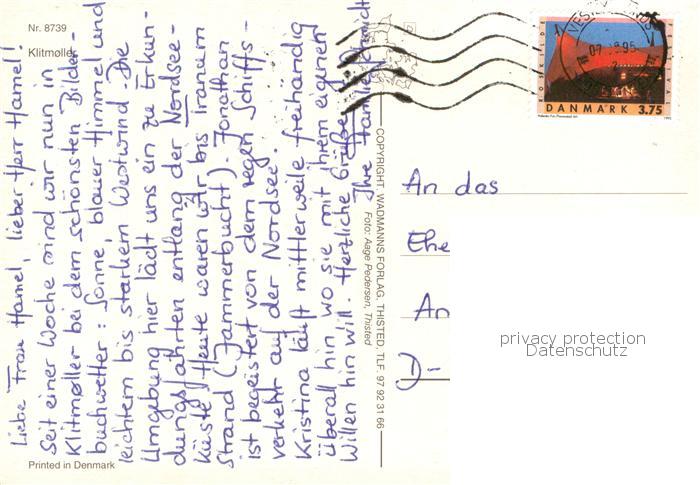 Nr. 8739
Klitmøller
Liebe Frau Hamel, lieber Herr Hamel!
Seit einer Woche sind wir nun in
Klitmøller bei dem schönsten Bilder-
buchwetter: Sonne, blauer Himmel und
leichtem bis starkem Westwind. Die
Umgebung hier lädt uns ein zu Erkun-
dungsfahrten entlang der Nordsee-
küste. Heute waren wir bis Tranum
Strand (Jammerbucht). Jonathan
ist begeistert von dem regen Schiffs-
verkehr auf der Nordsee.
Kristina läuft mittlerweile freihändig
überall hin, wo sie mit ihrem eigenen
Willen hin will. Herzliche Grüße
Ihre Familie
COPYRIGHT. WADMANNS FORLAG. THISTED. TLF. 97 92 31 66
Foto: Aage Pedersen, Thisted
Printed in Denmark
DANMARK 3.75
An das
Ehe
An
D-
privacy protection
Datenschutz